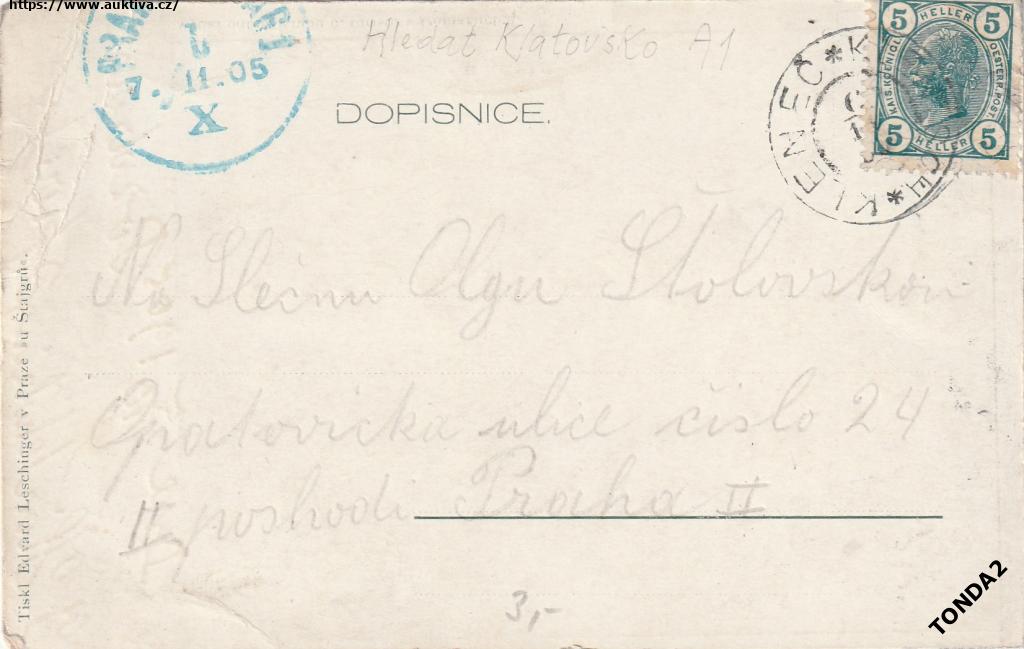 https://www.auktiva.cz/
7. 11. 05
X
Hledat Klatovsko A1
DOPISNICE.
KLENEČ
5 HELLER 5
KAIS. KOENIGL. OESTERR. POST.
5 HELLER 5
Na Slečnu Olgu Stolovskou
Opatovická ulice číslo 24
II poshodí Praha II
3,-
Tiskl Edvard Leschinger v Praze »u Štajgrů«.
TONDA2